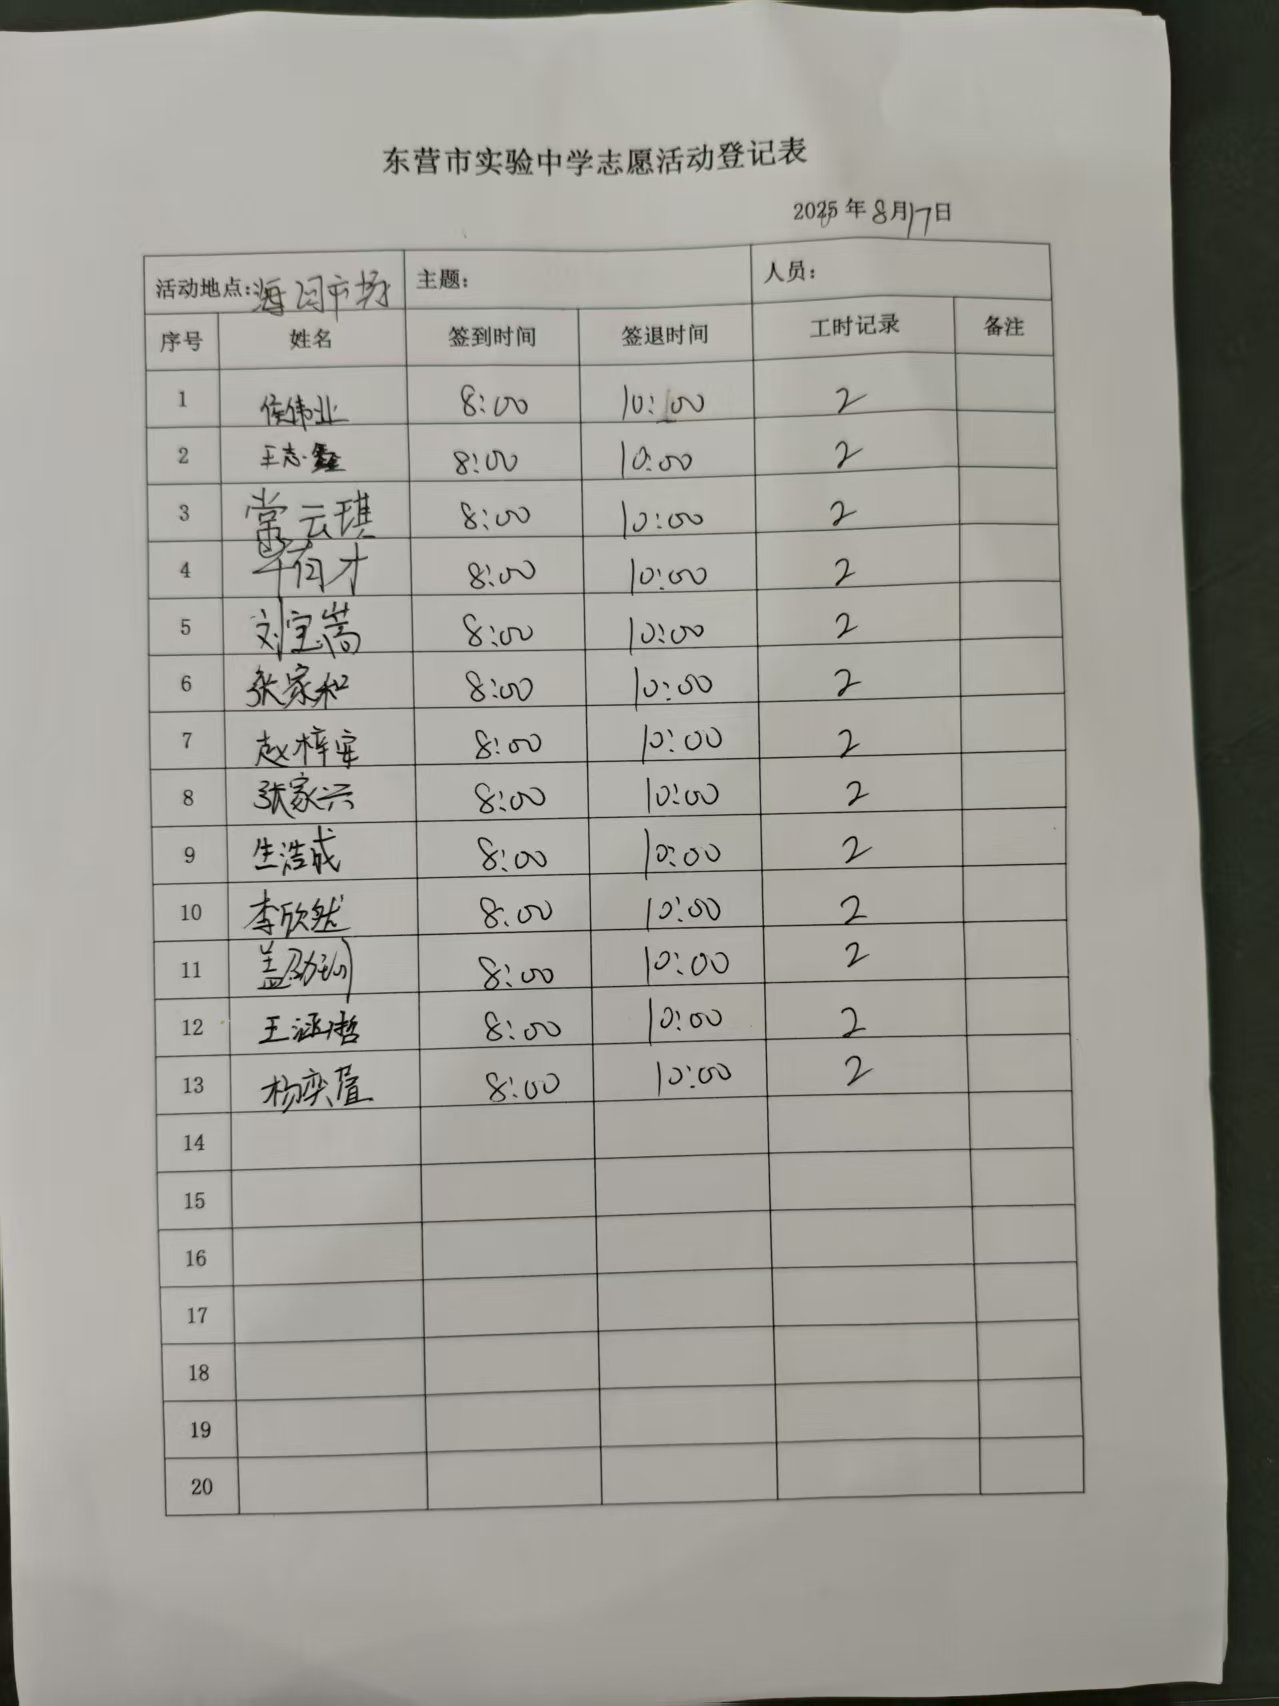 东营市实验中学志愿活动登记表
2025年8月17日
活动地点:海园市场 主题: 人员:
序号 姓名 签到时间 签退时间 工时记录 备注
1 侯伟业 8:00 10:00 2
2 王志鑫 8:00 10:00 2
3 常云琪 8:00 10:00 2
4 有才 8:00 10:00 2
5 刘宝嵩 8:00 10:00 2
6 张家和 8:00 10:00 2
7 赵梓安 8:00 10:00 2
8 张家兴 8:00 10:00 2
9 生浩成 8:00 10:00 2
10 李欣然 8:00 10:00 2
11 盖 8:00 10:00 2
12 王涵哲 8:00 10:00 2
13 杨奕 8:00 10:00 2
14
15
16
17
18
19
20